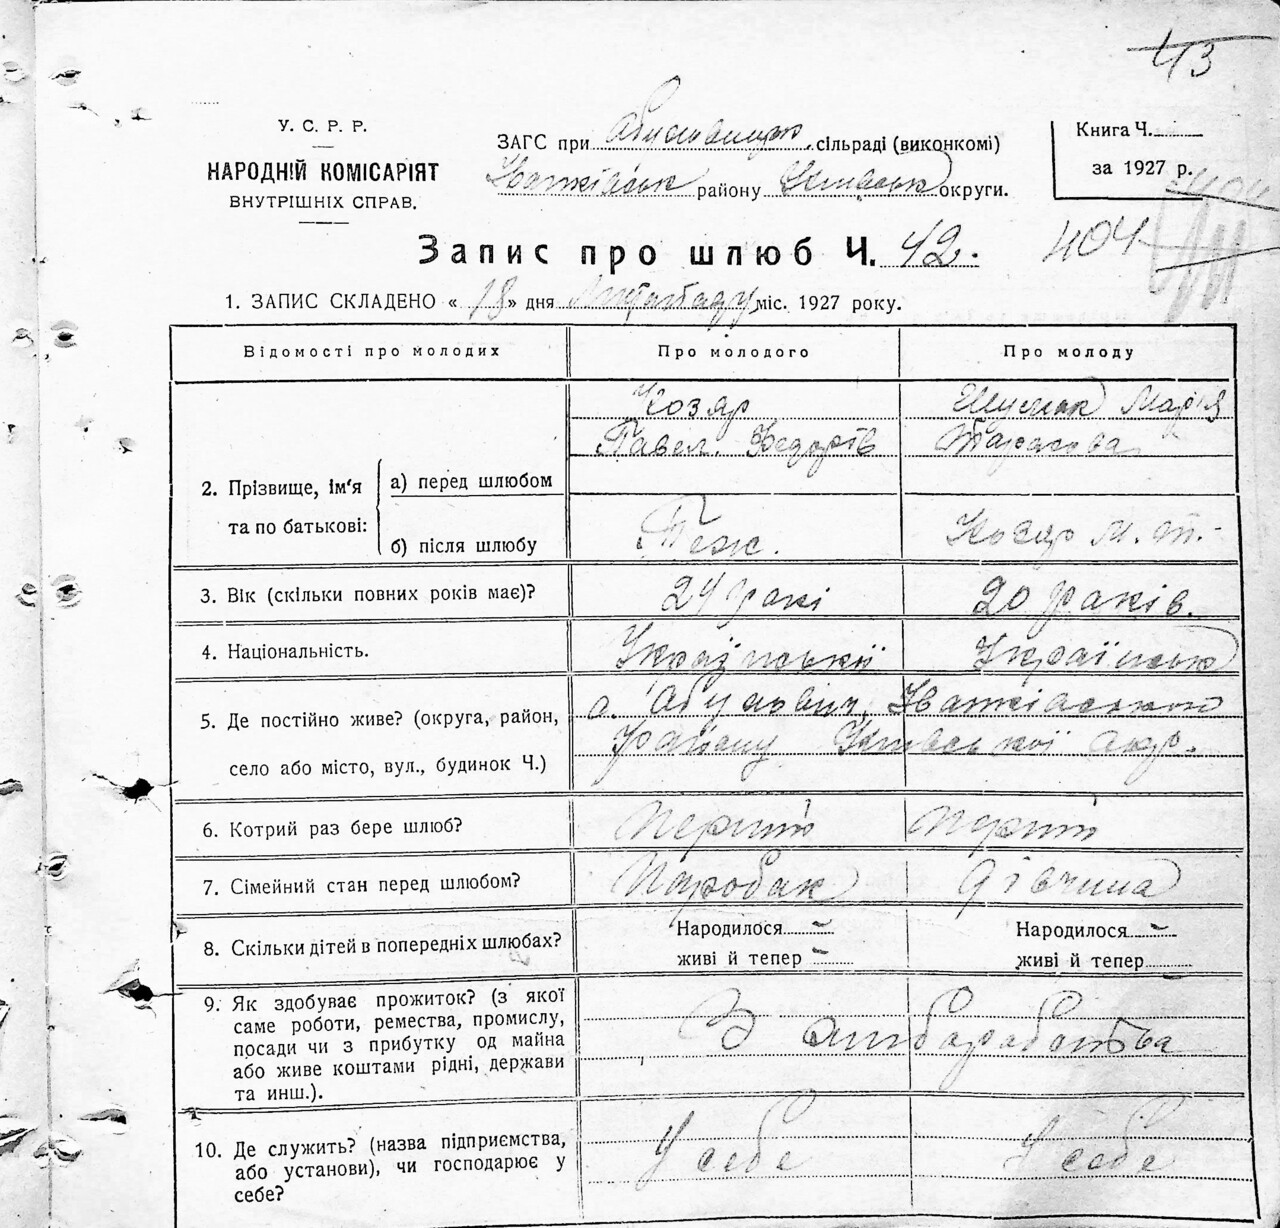 43
У. С. Р. Р.
НАРОДНІЙ КОМІСАРІЯТ
ВНУТРІШНІХ СПРАВ.
ЗАГС при сільраді (виконкомі)
району округи.
Книга Ч.
за 1927 р.
404
Запис про шлюб Ч. 42.
1. ЗАПИС СКЛАДЕНО « 18 » дня Листопаду міс. 1927 року.
Відомості про молодих Про молодого Про молоду
2. Прізвище, ім'я та по батькові:
а) перед шлюбом
Козяр
Павел. Федорів
Шумак Марія
Тарасова
б) після шлюбу Теж. Козяр М. Т.
3. Вік (скільки повних років має)? 24 ракі 20 раків.
4. Національність. Український Українськ
5. Де постійно живе? (округа, район,
село або місто, вул., будинок Ч.)
с.
Району Київської окр.
6. Котрий раз бере шлюб? Перший Перший
7. Сімейний стан перед шлюбом? Паробак Дівчина
8. Скільки дітей в попередніх шлюбах? Народилося - Народилося -
живі й тепер - живі й тепер -
9. Як здобуває прожиток? (з якої
саме роботи, ремества, промислу,
посади чи з прибутку од майна
або живе коштами рідні, держави
та инш.).
З
10. Де служить? (назва підприємства,
або установи), чи господарює у
себе?
У себе У себе